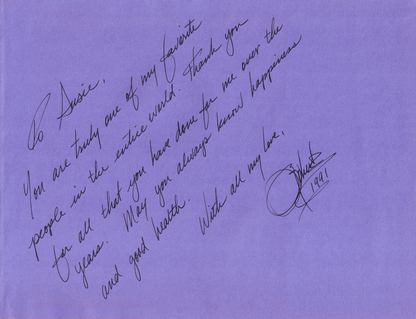 To Susie,
You are truly one of my favorite
people in the entire world. Thank you
for all that you have done for me over the
years. May you always know happiness
and good health.
With all my love,
1991